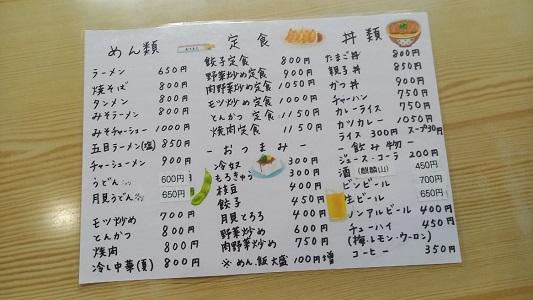 めん類
ラーメン 650円
焼そば 800円
タンメン 800円
みそラーメン 800円
みそチャーシュー 1000円
五目ラーメン(塩) 850円
チャーシューメン 900円
うどん 600円
月見うどん 650円
モツ炒め 700円
とんかつ 800円
焼肉 800円
冷し中華(夏) 800円
定食
餃子定食 800円
野菜炒め定食 900円
肉野菜炒め定食 1050円
モツ炒め定食 1000円
とんかつ定食 1150円
焼肉定食 1150円
-おつまみ-
冷奴 300円
もろきゅう 300円
枝豆 400円
餃子 450円
月見とろろ 400円
野菜炒め 600円
肉野菜炒め 750円
※めん、飯大盛100円増
丼類
たまご丼 800円
親子丼 850円
かつ丼 900円
チャーハン 750円
カレーライス 750円
カツカレー 1050円
ライス 300円 スープ30円
-飲み物-
ジュース・コーラ 200円
酒(麒麟山) 450円
ビンビール 700円
生ビール 650円
ノンアルビール 400円
チューハイ 450円
(梅・レモン・ウーロン)
コーヒー 350円